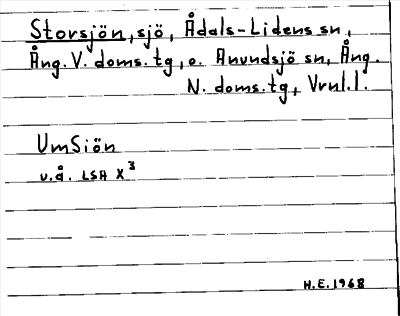 Storsjön, sjö, Ådals-Lidens sn,
Ång. V. doms.tg, o. Anundsjö sn, Ång.
N. doms.tg, Vrnl.l.
UmSiön
u.å. LSA X³
H.E. 1968